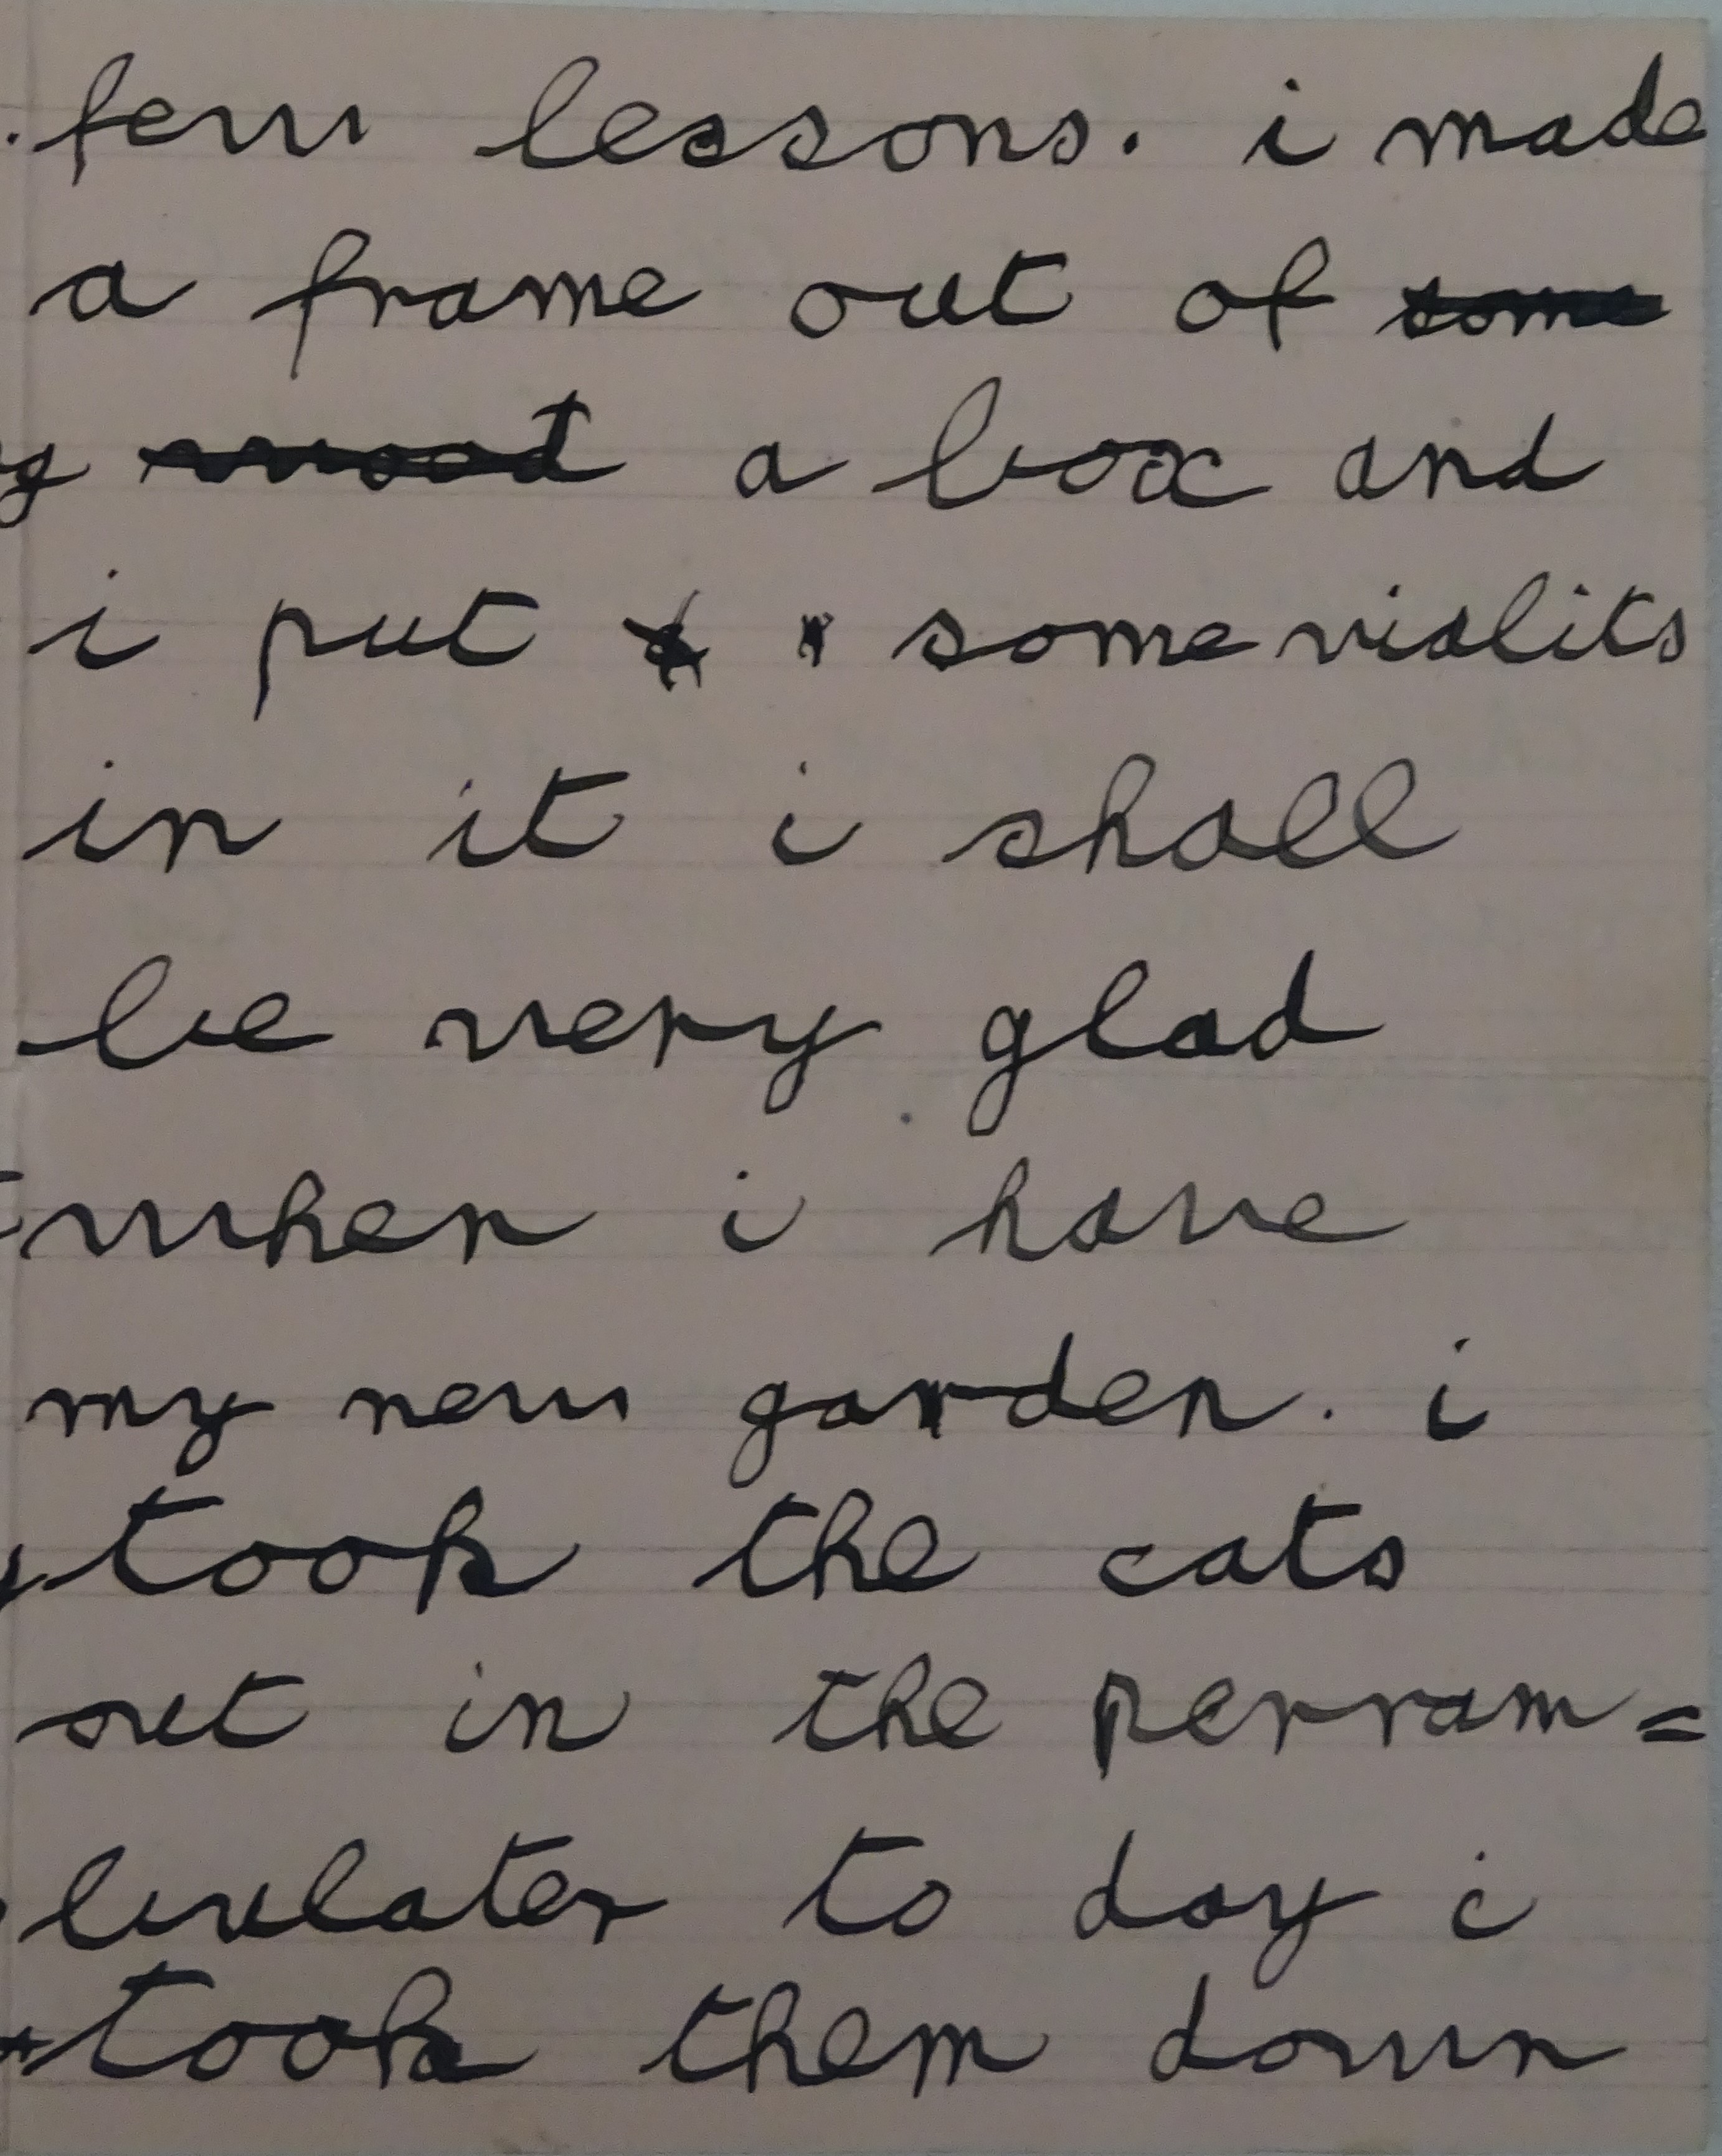 few lessons. i made
a frame out of some
wood a box and
i put some vialits
in it i shall
be very glad
when i have
my new garden. i
took the cats
out in the perram=
bulater to day i
took them down